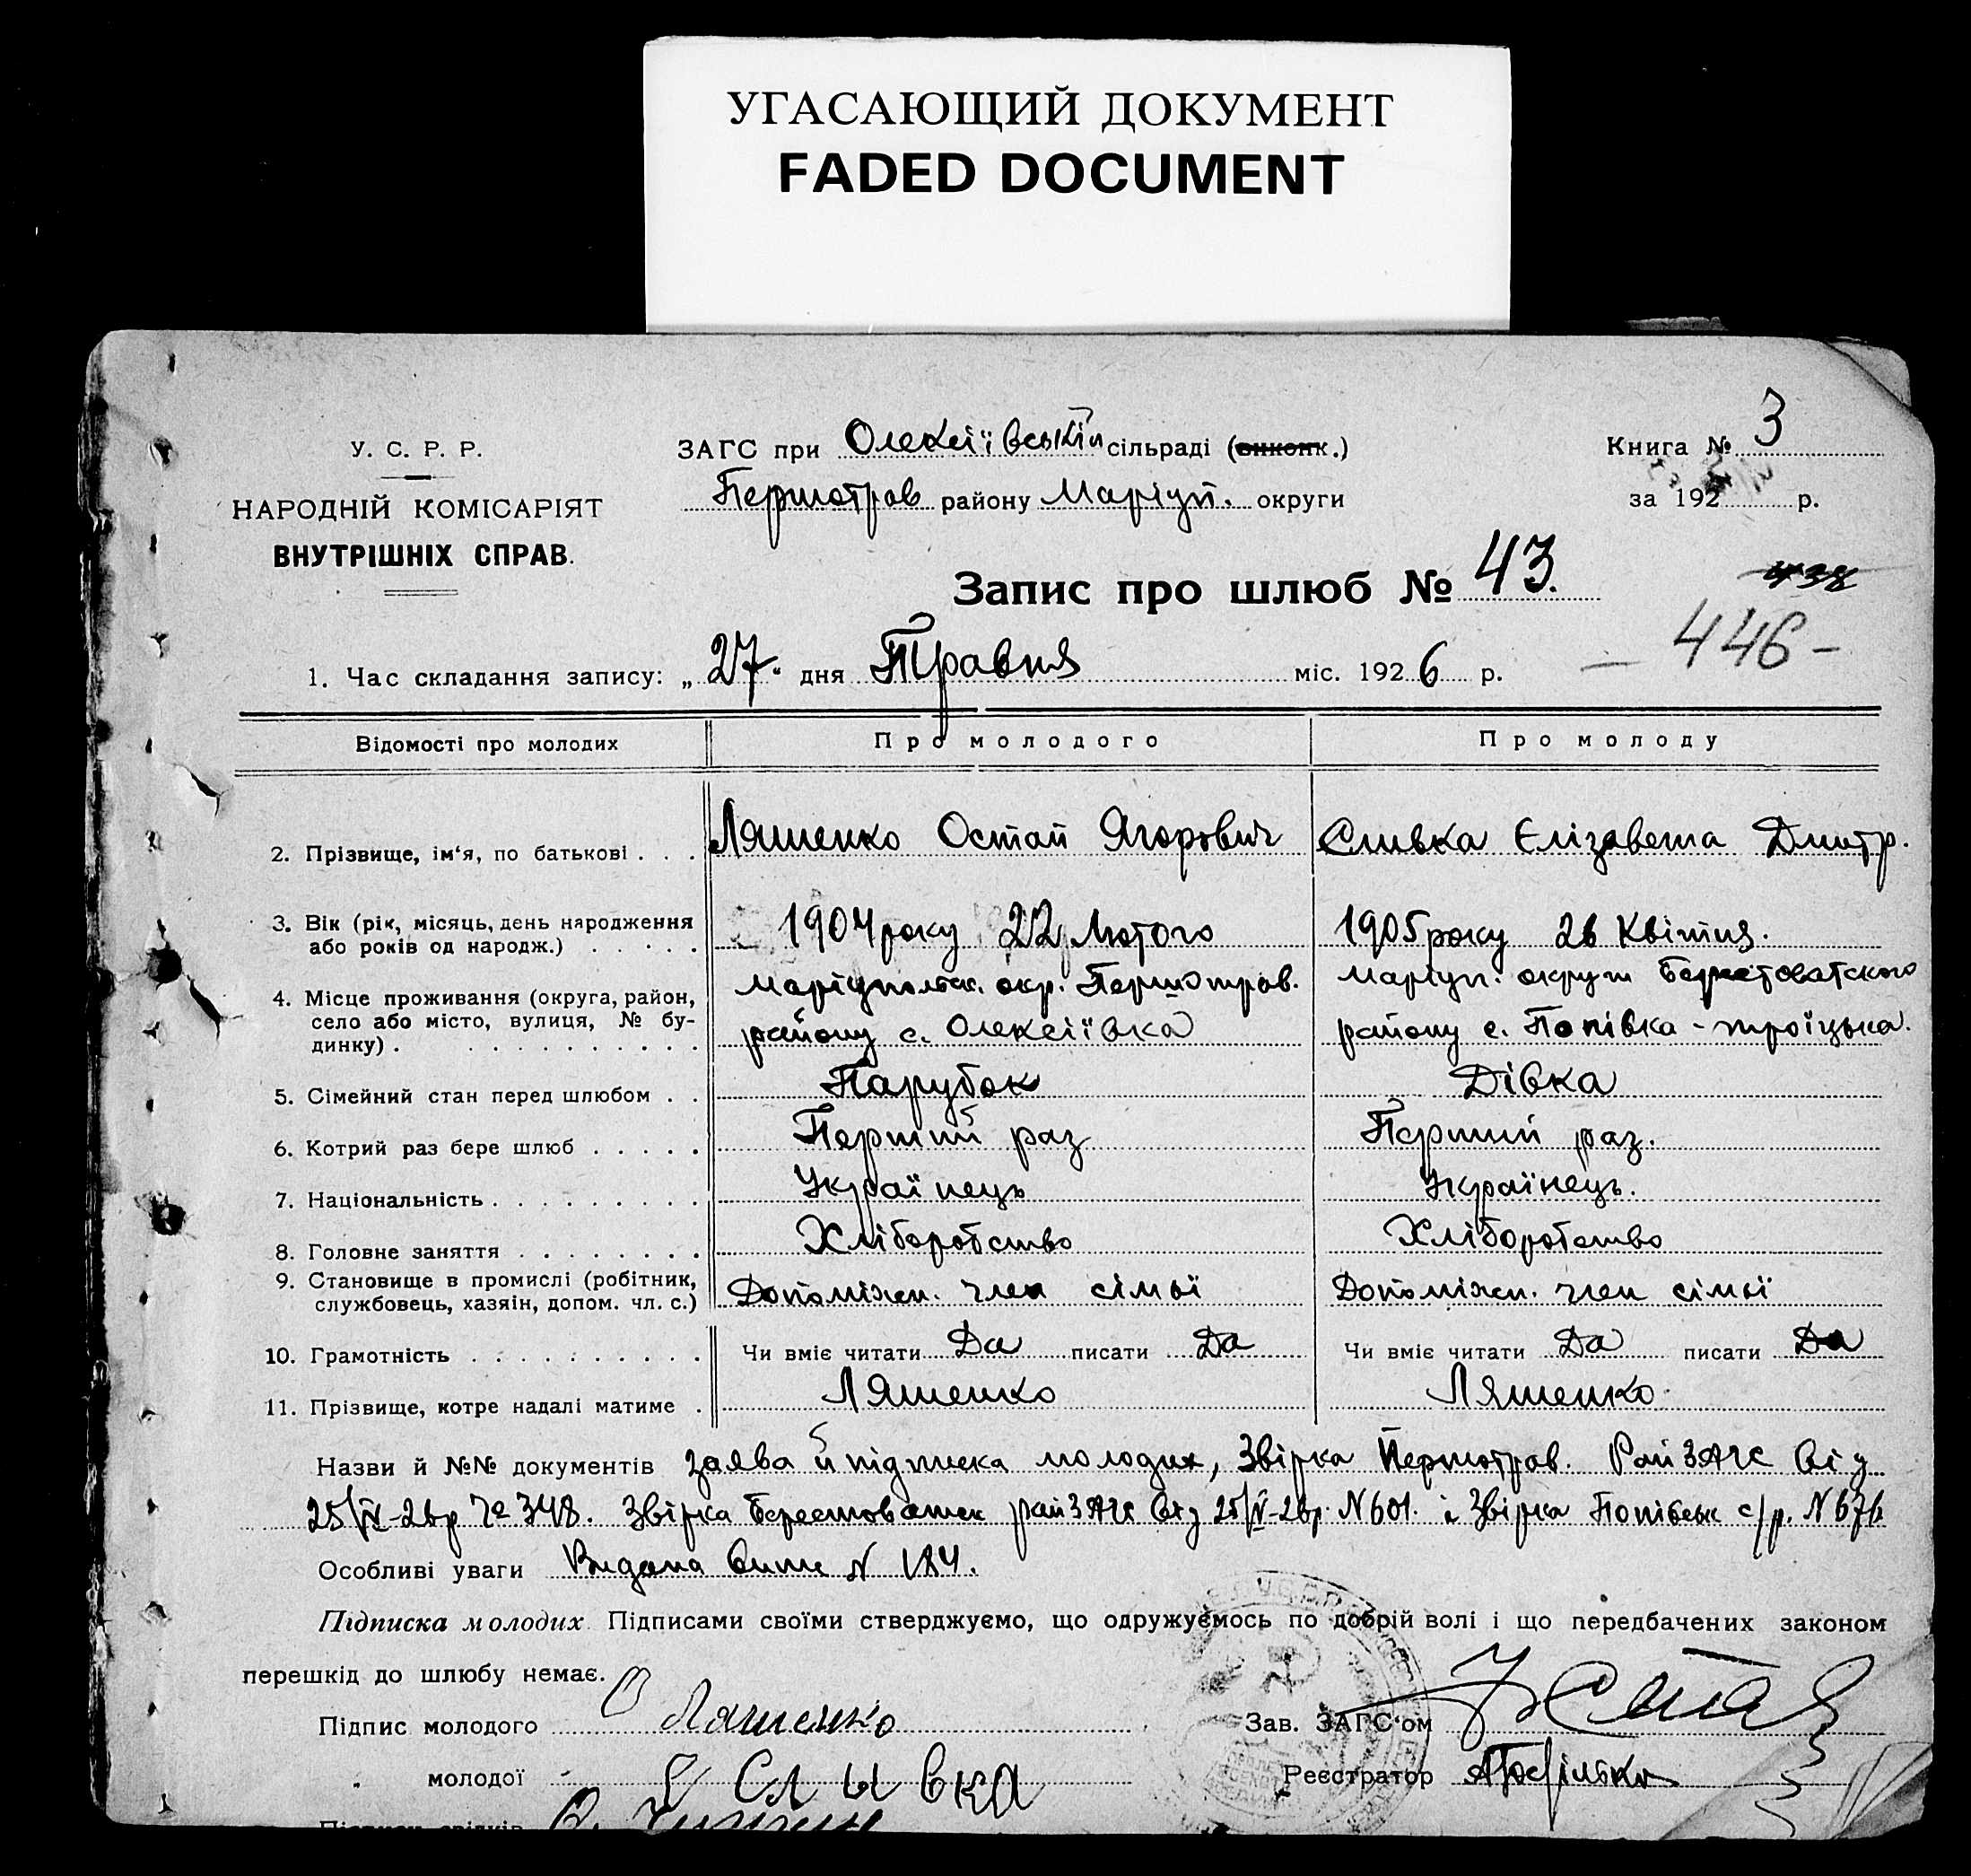 УГАСАЮЩИЙ ДОКУМЕНТ
FADED DOCUMENT
У. С. Р. Р.
НАРОДНІЙ КОМІСАРІЯТ
ВНУТРІШНІХ СПРАВ.
ЗАГС при Олексіївській сільраді (виконк.)
Першотрав району Маріуп. округи
Книга № 3
за 192 р.
Запис про шлюб № 43.
438
– 446 –
1. Час складання запису: „27“ дня Травня міс. 1926 р.
Відомості про молодих Про молодого Про молоду
2. Прізвище, ім‘я, по батькові . . . Ляшенко Остап Ягорович Сливка Єлізавета Дмитр.
3. Вік (рік, місяць, день народження або років од народж.) . . . . . 1904 року 22 Лютого 1905 року 26 Квітня.
4. Місце проживання (округа, район, село або місто, вулиця, № будинку) . . . . . . . . . .
Маріупольск. окр. Першотрав.
району с. Олексіївка
Маріуп. округи
району с. Попівка - троїцька.
5. Сімейний стан перед шлюбом . . Парубок Дівка
6. Котрий раз бере шлюб . . . . . Перший раз Перший раз.
7. Національність . . . . . . . . . Українець Українець.
8. Головне заняття . . . . . . . . Хліборобство Хліборобство
9. Становище в промислі (робітник, службовець, хазяін, допом. чл. с.) Допоміжн. член сімьї Допоміжн. член сімьї
10. Грамотність . . . . . . . . . . Чи вміє читати Да писати Да Чи вміє читати Да писати Да
11. Прізвище, котре надалі матиме . Ляшенко Ляшенко.
Назви й №№ документів заява й підписка молодих, Звірка Першотрав. РайЗАГС Від
25/IV-26р № 348. Звірка Берестоватск райЗАГС Від 25/V-26р. N 601. і Звірка Попівськ с/р. N 676
Особливі уваги Видана N 184.
Підписка молодих. Підписами своїми стверджуємо, що одружуємось по добрій волі і що передбачених законом
перешкід до шлюбу немає.
Підпис молодого О Ляшенко
Зав. ЗАГС‘ом
„ молодої Є Сливка
Реєстратор
Підписи свідків